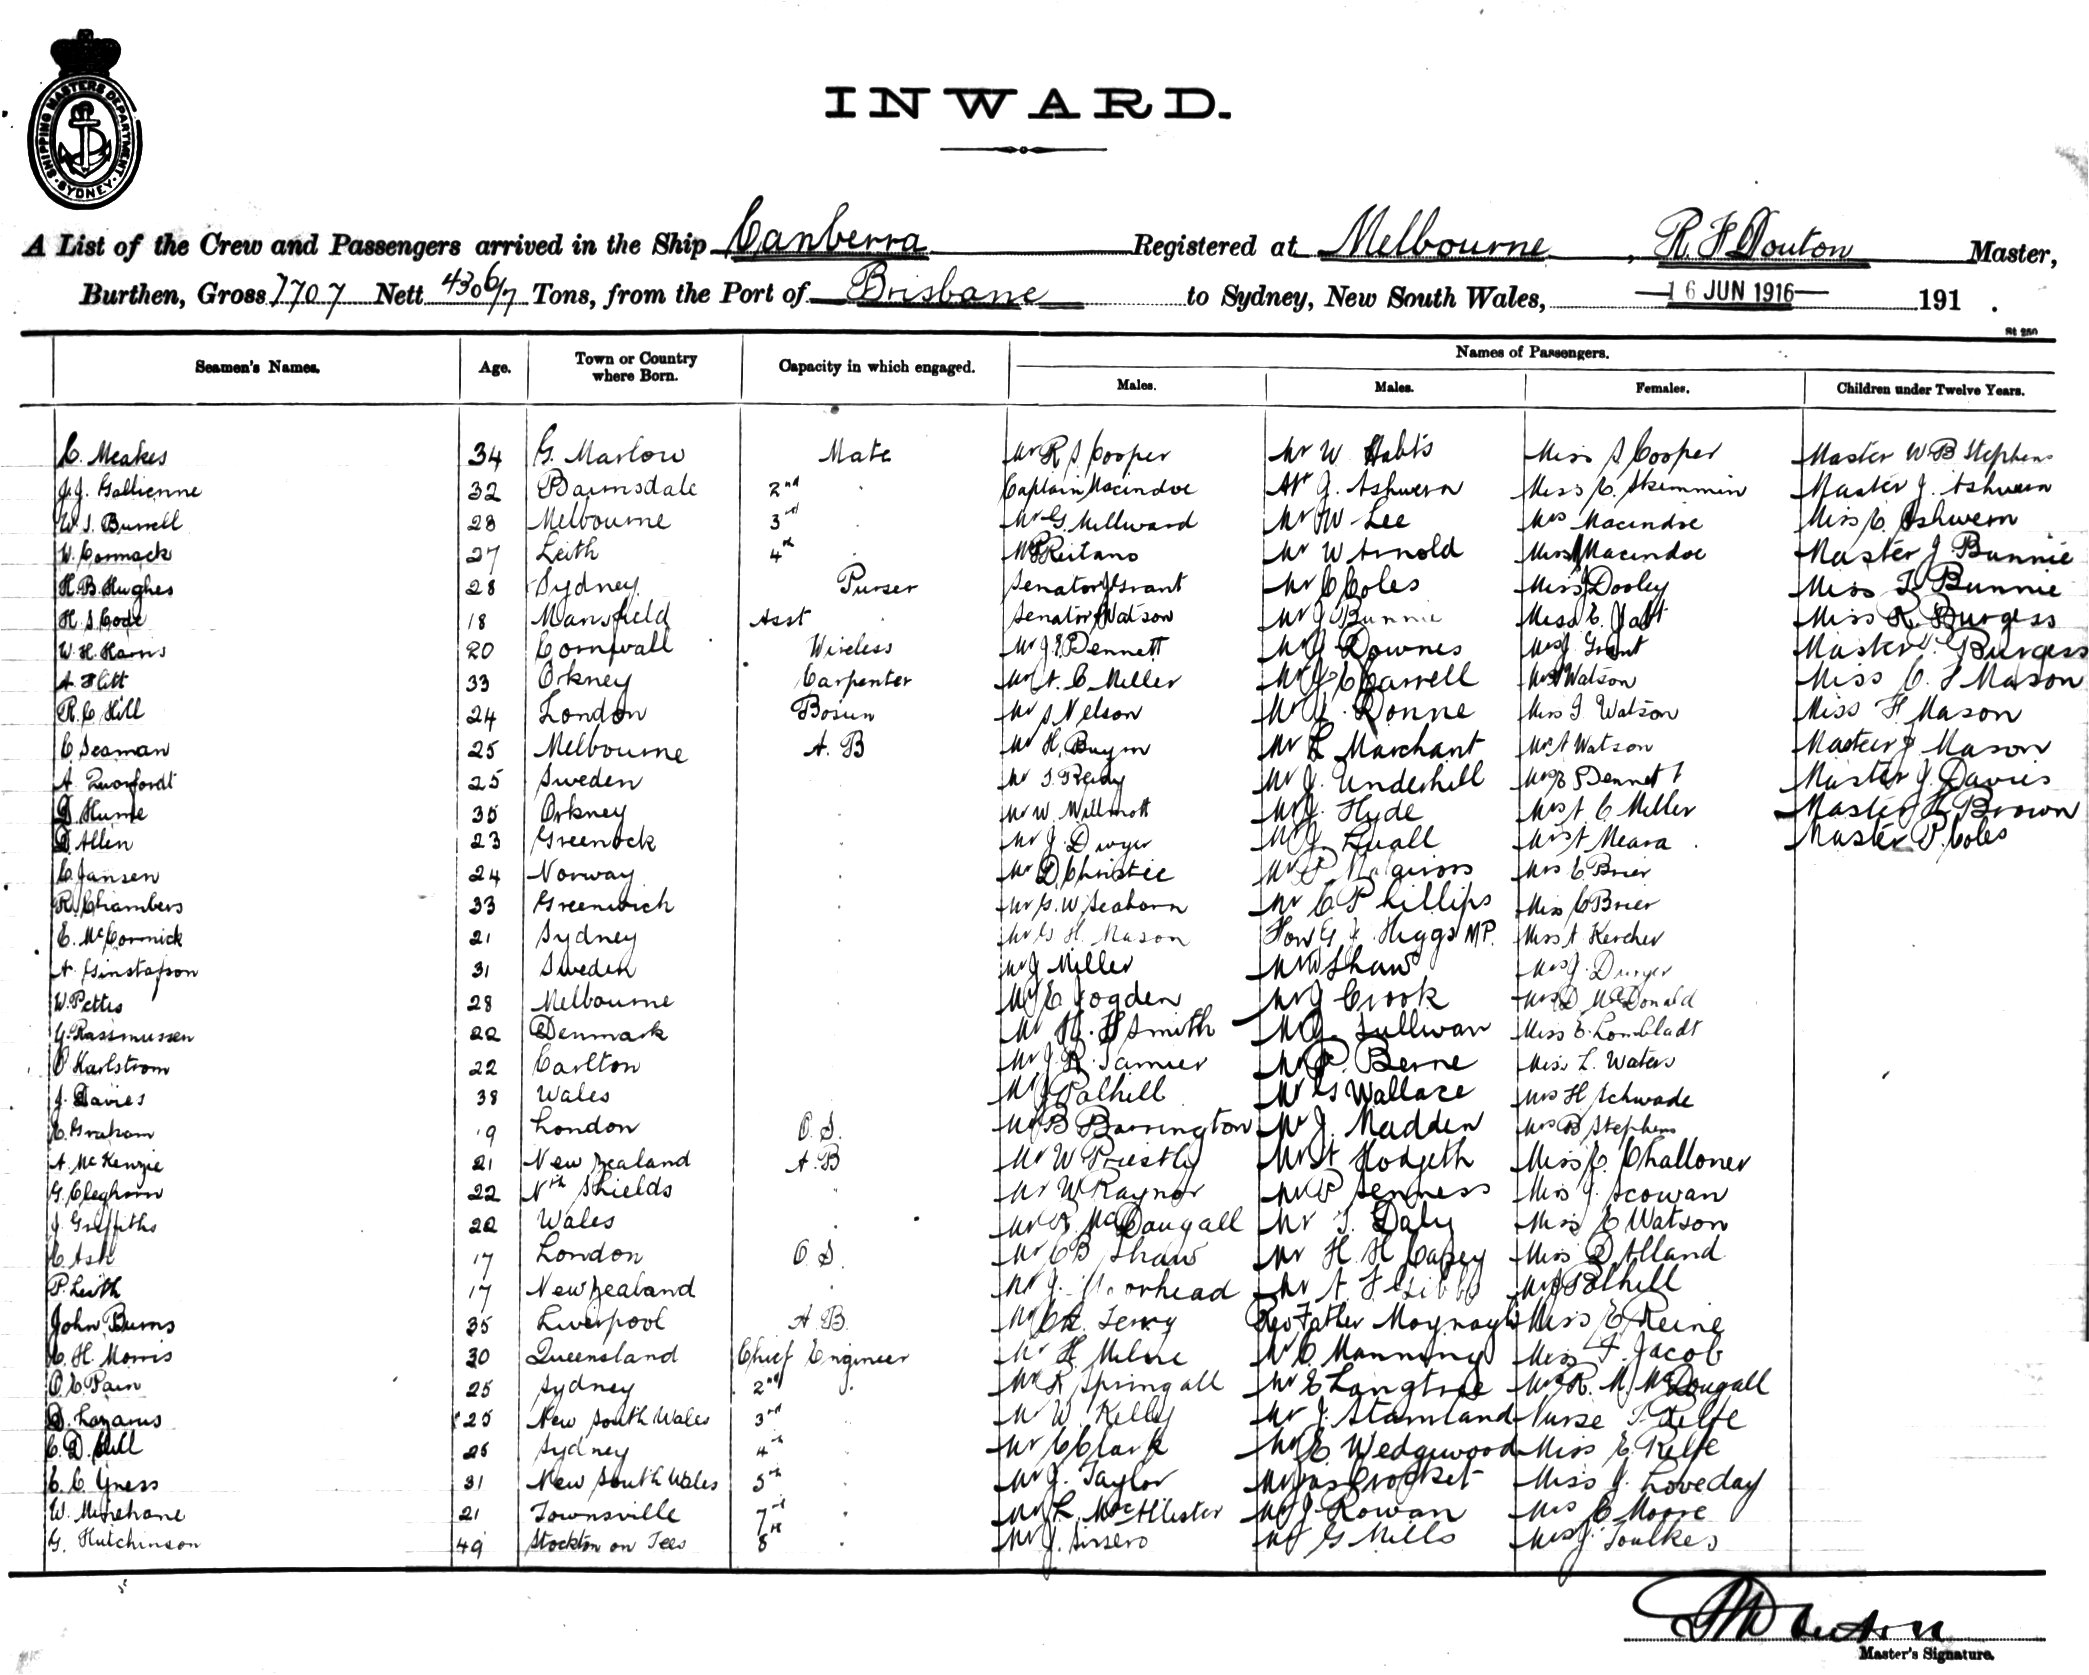 SHIPPING MASTERS DEPARTMENT
SYDNEY
INWARD.
A List of the Crew and Passengers arrived in the Ship Canberra Registered at Melbourne, R. F Douton Master,
Burthen, Gross 7707 Nett 4306/7 Tons, from the Port of Brisbane to Sydney, New South Wales, 16 JUN 1916 191 .
St 250
Seamen's Names. Age. Town or Country where Born. Capacity in which engaged. Names of Passengers.
Males. Males. Females. Children under Twelve Years.
C. Meakes 34 G. Marlow Mate Mr R S Cooper Mr W Hobbs Miss S Cooper Master W B Stephens
J. J. Gallienne 32 Bairnsdale 2nd Captain Macindoe Mr J. Ashwern Miss C. Skimmin Master J. Ashwern
W. S. Burrell 28 Melbourne 3rd Mr G. Millward Mr W Lee Mrs Macindoe Miss C Ashwern
W. Cormack 27 Leith 4th Reitano Mr W Arnold Miss Macindoe Master J Bunnie
H. B. Hughes 28 Sydney Purser Senator J Grant Mr C Coles Miss J Dooley Miss Bunnie
H. S. Code 18 Mansfield Asst Senator Watson Mr J Bunnie Miss E. Miss R. Burgess
W. H. Harris 20 Cornwall Wireless Mr J. E Bennett Mr J Downes Mrs J Grant Master Burgess
A Flett 33 Orkney Carpenter Mr A. C Miller Mr J C Carrell Mrs Watson Miss C. F Mason
R. C Hill 24 London Bosun Mr S Nelson Mr J. Ronne Miss J Watson Miss F Mason
C Seaman 25 Melbourne A. B Mr H. Mr L Marchant Mr A Watson Master J Mason
A 25 Sweden Mr T. Ready Mr J. Underhill Mrs E Bennett Master J. Davies
D Hume 35 Orkney Mr W. Willmott Mr J. Hyde Mrs A C Miller Master H Brown
D Allen 23 Greenock Mr J. Dwyer Mr J. Mrs A Meara Master P. Coles
C Jansen 24 Norway Mr D Christie Mr P. Mrs C Brier
R. Chambers 33 Greenwich Mr G. W Seaborn Mr C Phillips Miss C Brier
E. McCormick 21 Sydney Mr G H. Mason Hon G Higgs MP. Miss A Kercher
A Ginstafson 31 Sweden Mr J Miller Mr W Shaw Mrs J. Dwyer
W. Pettis 28 Melbourne Mr E Jogden Mr J Crook Mrs D McDonald
G. Rassmussen 22 Denmark Mr H. H Smith Mr J. Sullivan Miss E. Lombladt
O Karlstrom 22 Carlton Mr J R. Mr P. Berne Miss L. Waters
J. Davies 38 Wales Mr J Polhill Mr G Wallace Mrs H Schwade
E. Graham 19 London O. S. Mr B Barrington Mr J. Madden Mrs B Stephens
A McKenzie 21 New Zealand A. B Mr W Priestly Mr A Hodgeth Miss C. Challoner
G. Cleghorn 22 Nth Shields Mr W Raynor Mr P Senness Miss J. Scowan
J. Griffiths 22 Wales Mr A McDougall Mr T. Daly Miss E Watson
C Ash 17 London O S. Mr C B Shaw Mr H. H Capey Miss D Alland
P. Leith 17 New Zealand Mr J. Moorhead Mr A F Gibbs Mrs J Polhill
John Burns 35 Liverpool A B. Mr Terry Rev Father Miss E Reine
C. H. Morris 30 Queensland Chief Engineer Mr H Milne Mr C. Manning Miss F. Jacob
O. C. Pain 25 Sydney 2nd Mr R Springall Mr E Langtree Mrs R. M. McDougall
D. Lazarus 25 New South Wales 3rd Mr W. Kelly Mr J. Stamland Nurse Relfe
C. D. Hill 25 Sydney 4th Mr C Clark Mr E Wedgwood Miss E. Relfe
C. C. Gness 31 New South Wales 5th Mr J. Taylor Mr Jas Crocket Miss J. Loveday
W. Minehane 21 Townsville 7th Mr L. MacAllister Mr J. Rowan Mrs C Moore
G. Hutchinson 49 Stockton on Tees 8th Mr J. Sinsero Mr G Mills Mrs J. Foulkes
Master's Signature.